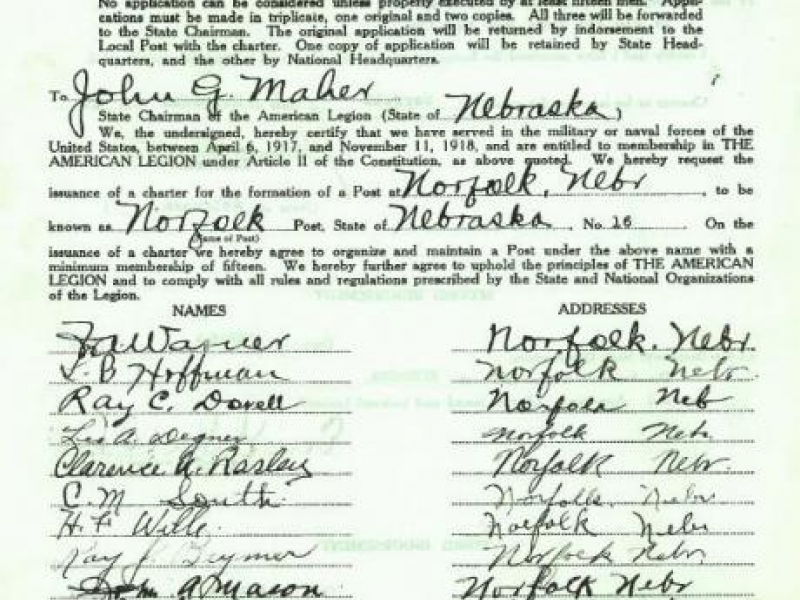 No application can be considered unless properly executed by at least fifteen men. Appli-
cations must be made in triplicate, one original and two copies. All three will be forwarded
to the State Chairman. The original application will be returned by indorsement to the
Local Post with the charter. One copy of application will be retained by State Head-
quarters, and the other by National Headquarters.
To John G. Maher
State Chairman of the American Legion (State of Nebraska)
We, the undersigned, hereby certify that we have served in the military or naval forces of the
United States, between April 6, 1917, and November 11, 1918, and are entitled to membership in THE
AMERICAN LEGION under Article II of the Constitution, as above quoted. We hereby request the
issuance of a charter for the formation of a Post at Norfolk, Nebr, to be
known as Norfolk Post, State of Nebraska, No. 16 On the
(Name of Post)
issuance of a charter we hereby agree to organize and maintain a Post under the above name with a
minimum membership of fifteen. We hereby further agree to uphold the principles of THE AMERICAN
LEGION and to comply with all rules and regulations prescribed by the State and National Organizations
of the Legion.
NAMES ADDRESSES
Warner Norfolk. Nebr.
B Hoffman Norfolk Nebr.
Ray C. Dovell Norfolk Neb
Leo A. Degner Norfolk Neb.
Clarence A. Rasley Norfolk Nebr.
C. M. South. Norfolk. Nebr
H. F. Wille. Norfolk Nebr
Ray J. Norfolk Nebr.
John A. Mason Norfolk Nebr